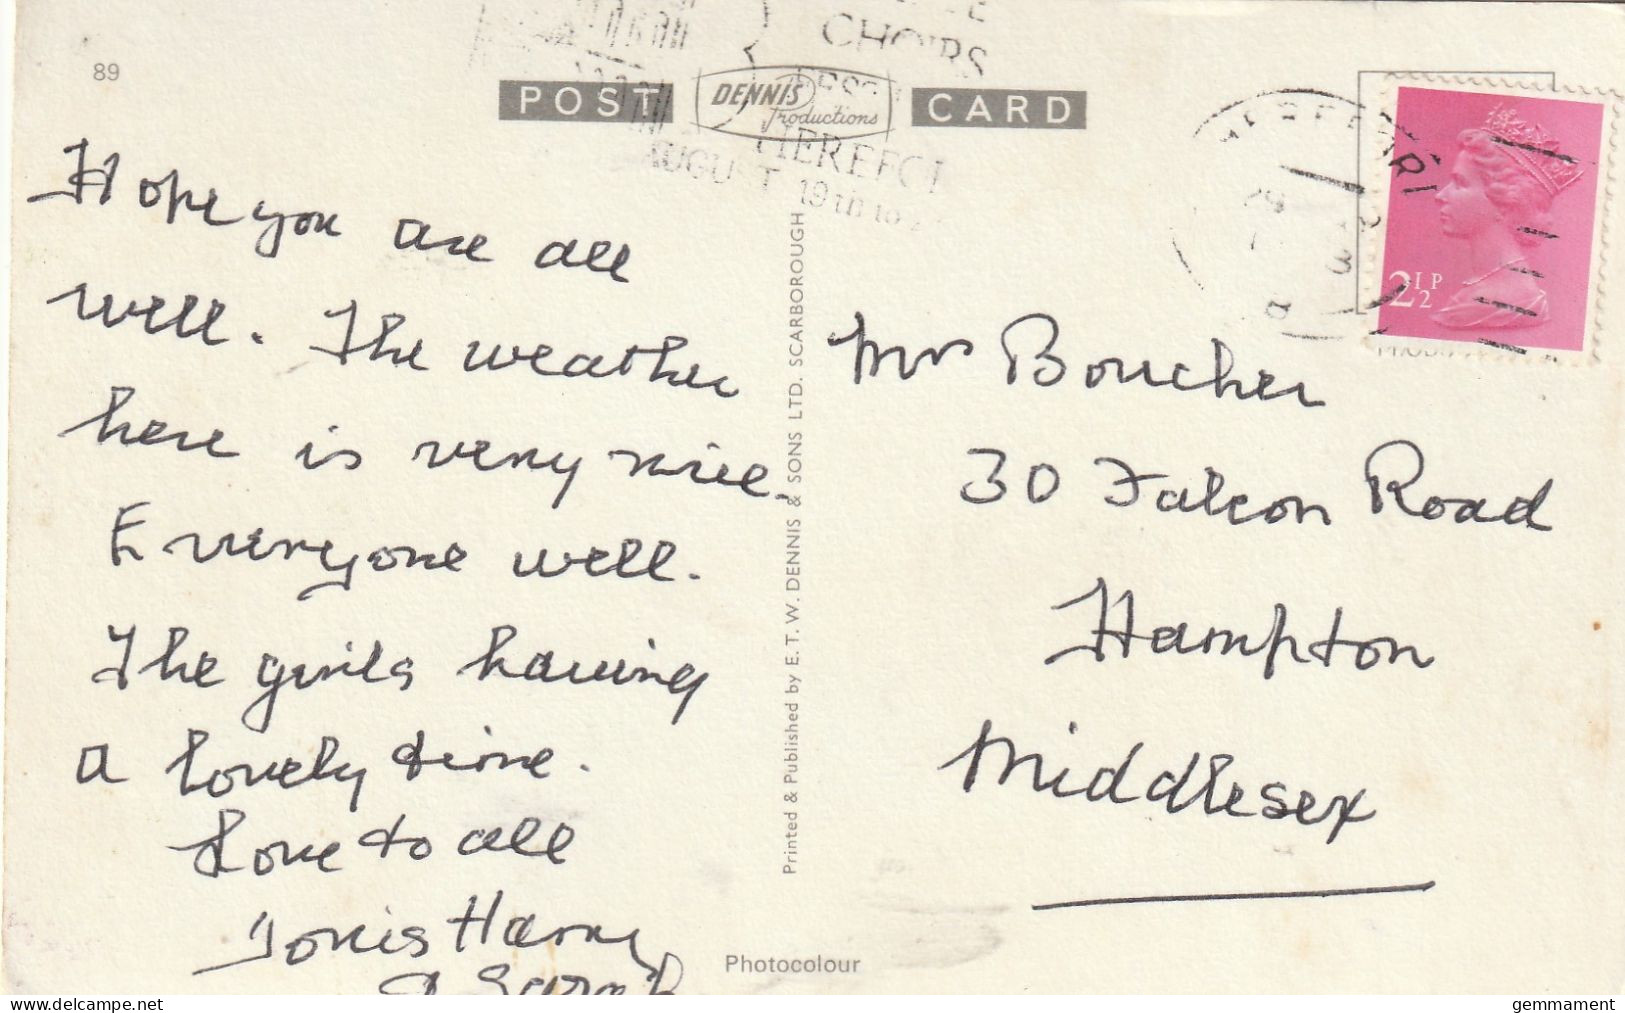 89
CHOIRS
POST DENNIS Productions CARD
AUGUST 19th to
Hope you are all
well. The weather
here is very nice.
Everyone well.
The girls having
a lovely time.
Love to all
Harry
& Sarah
Mrs Boucher
30 Falcon Road
Hampton
Middlesex
2½P
Printed & Published by E. T. W. DENNIS & SONS LTD. SCARBOROUGH
Photocolour
www.delcampe.net
gemmament